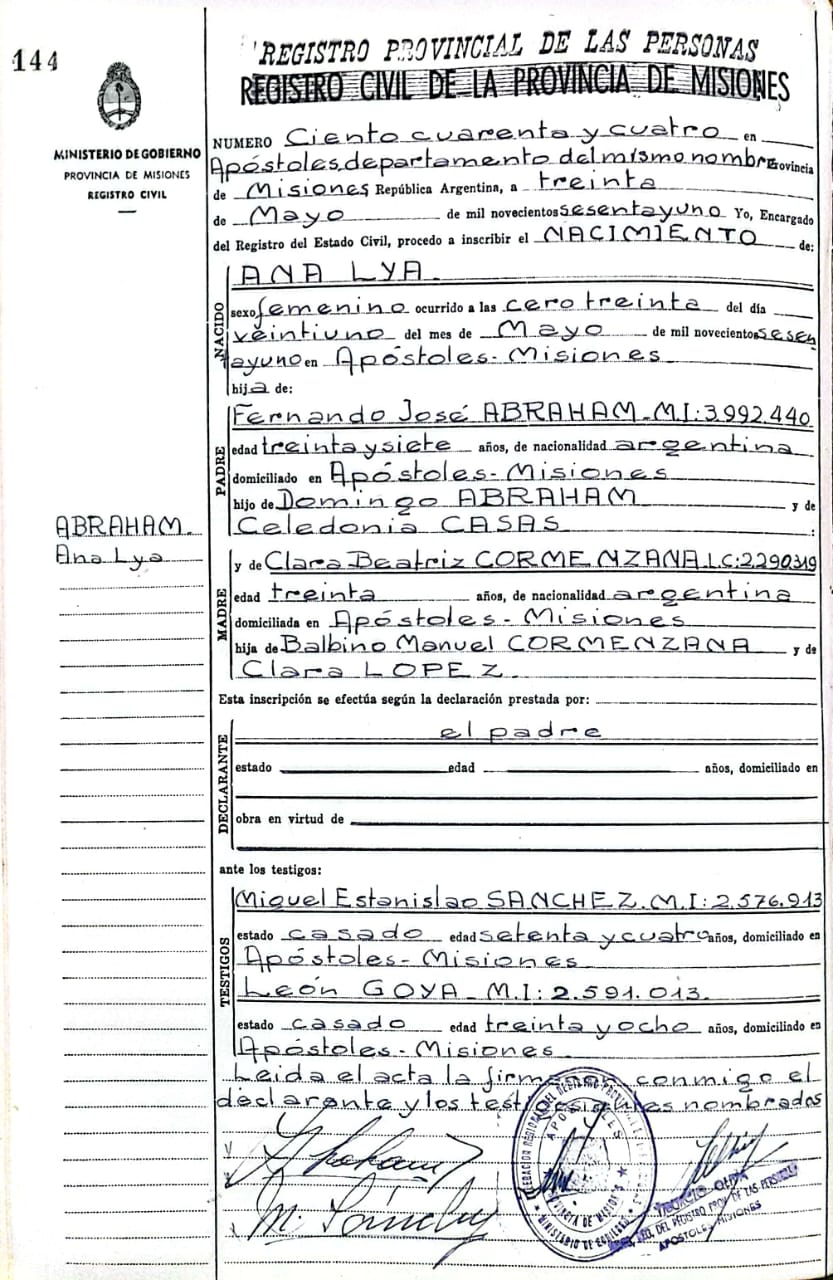 144
REGISTRO PROVINCIAL DE LAS PERSONAS
REGISTRO CIVIL DE LA PROVINCIA DE MISIONES
MINISTERIO DE GOBIERNO
PROVINCIA DE MISIONES
REGISTRO CIVIL
NUMERO Ciento cuarenta y cuatro en
Apóstoles, departamento del mismo nombre Provincia
de Misiones República Argentina, a treinta
de Mayo de mil novecientos sesentayuno Yo, Encargado
del Registro del Estado Civil, procedo a inscribir el NACIMIENTO de:
NACIDO
ANA LYA.
sexo femenino ocurrido a las cero treinta del día
veintiuno del mes de Mayo de mil novecientos sesen
tayuno en Apóstoles- Misiones
hija de:
PADRE
Fernando José ABRAHAM. M.I:3.992.440
edad treinta y siete años, de nacionalidad argentina
domiciliado en Apóstoles- Misiones
hijo de Domingo ABRAHAM y de
Celedonia CASAS :
ABRAHAM.
Ana Lya
MADRE
y de Clara Beatriz CORMENZANA L.C:2.290319
edad treinta años, de nacionalidad argentina
domiciliada en Apóstoles- Misiones
hija de Balbino Manuel CORMENZANA y de
Clara LOPEZ.
Esta inscripción se efectúa según la declaración prestada por:
DECLARANTE
el padre
estado edad años, domiciliado en
obra en virtud de
ante los testigos:
TESTIGOS
Miguel Estanislao SANCHEZ. M.I:2.576.913
estado casado edad setenta y cuatro años, domiciliado en
Apóstoles- Misiones
León GOYA M.I:2.591.013.
estado casado edad treinta y ocho años, domiciliado en
Apóstoles- Misiones
Leida el acta la conmigo el
declarante y los nombrados
Abraham
M. Sánchez
APOSTOLES
PROVINCIA DE MISIONES
MINISTERIO DE GOBIERNO
DEL REGISTRO PROV. DE LAS PERSONAS
APOSTOLES MISIONES